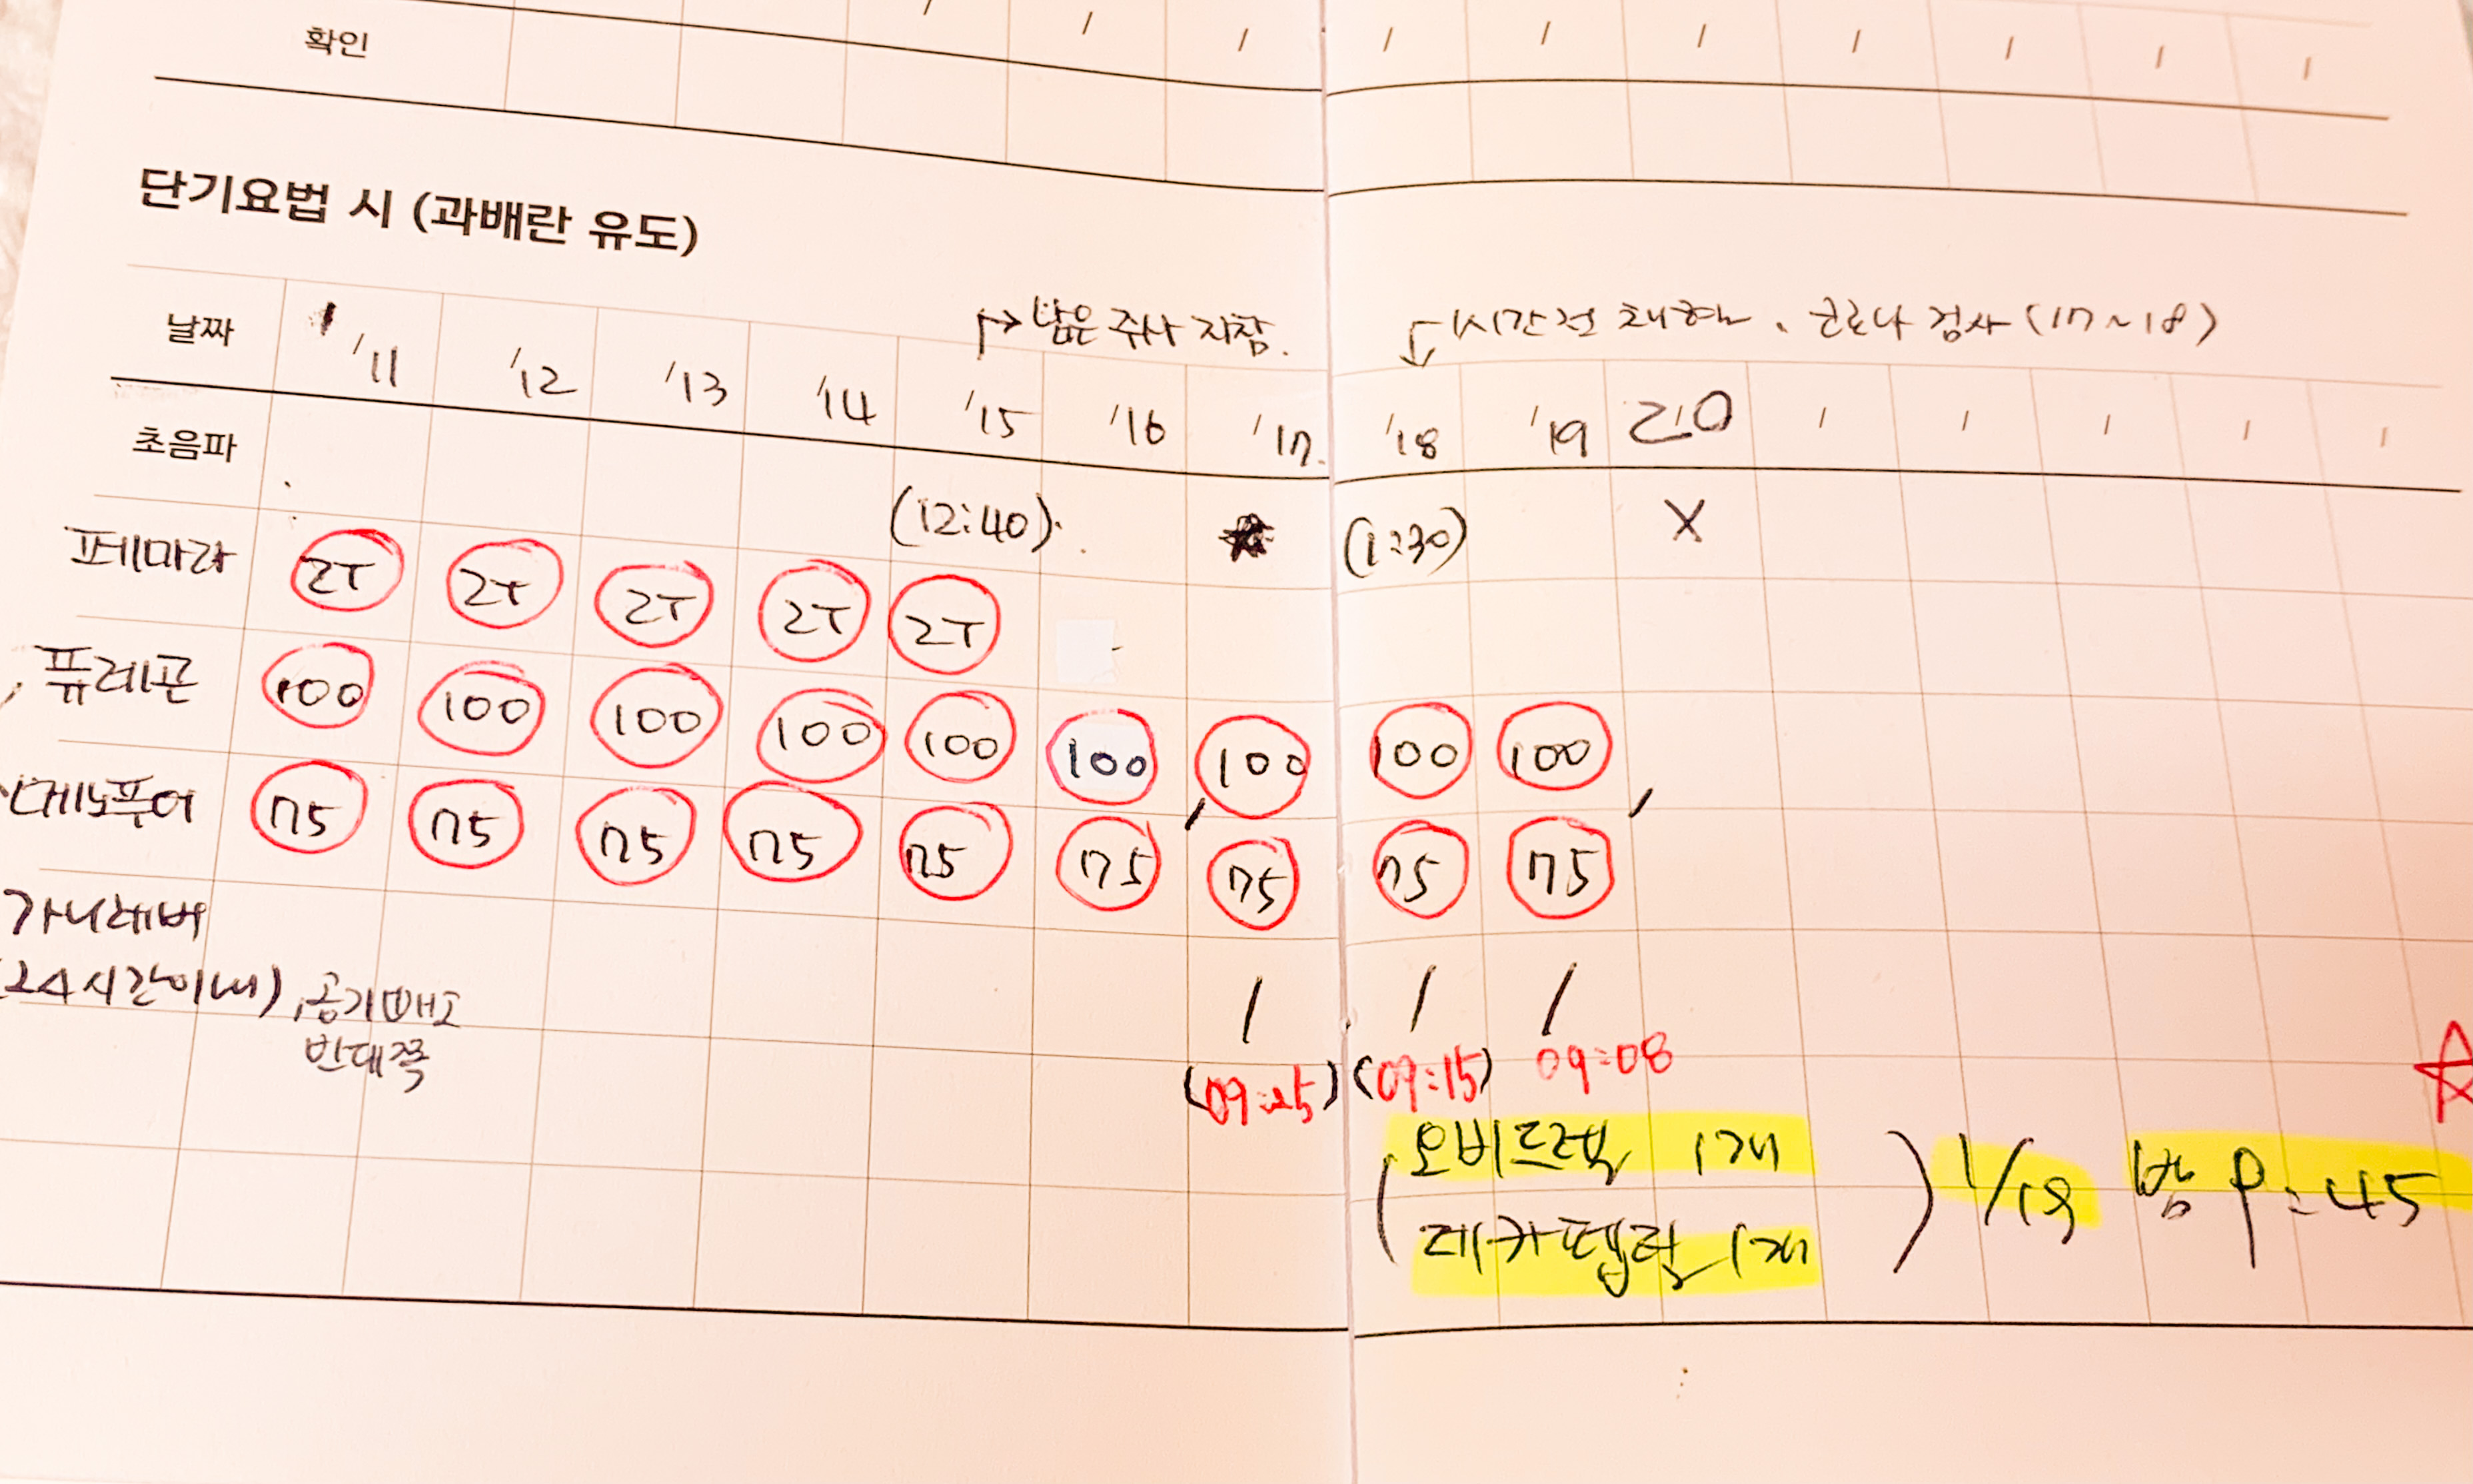 확인
/ / / / / / / / /
단기요법 시 (과배란 유도)
남은 주사 지참.
1시간전 채혈, 코로나 검사 (17~18)
날짜 1/11 /12 /13 /14 /15 /16 /17. /18 /19 20 / / / / /
초음파 (12:40). (1:30) X
페마라 2T 2T 2T 2T 2T
퓨레곤 100 100 100 100 100 100 100 100 100
75 75 75 75 75 75 75 75 75
가니레버
(24시간이내), 공기빼고
반대쪽
/ / /
(09:25) (09:15) 09:08
오비드렐 1개
데카펩틸 1개
1/19 밤 9:45